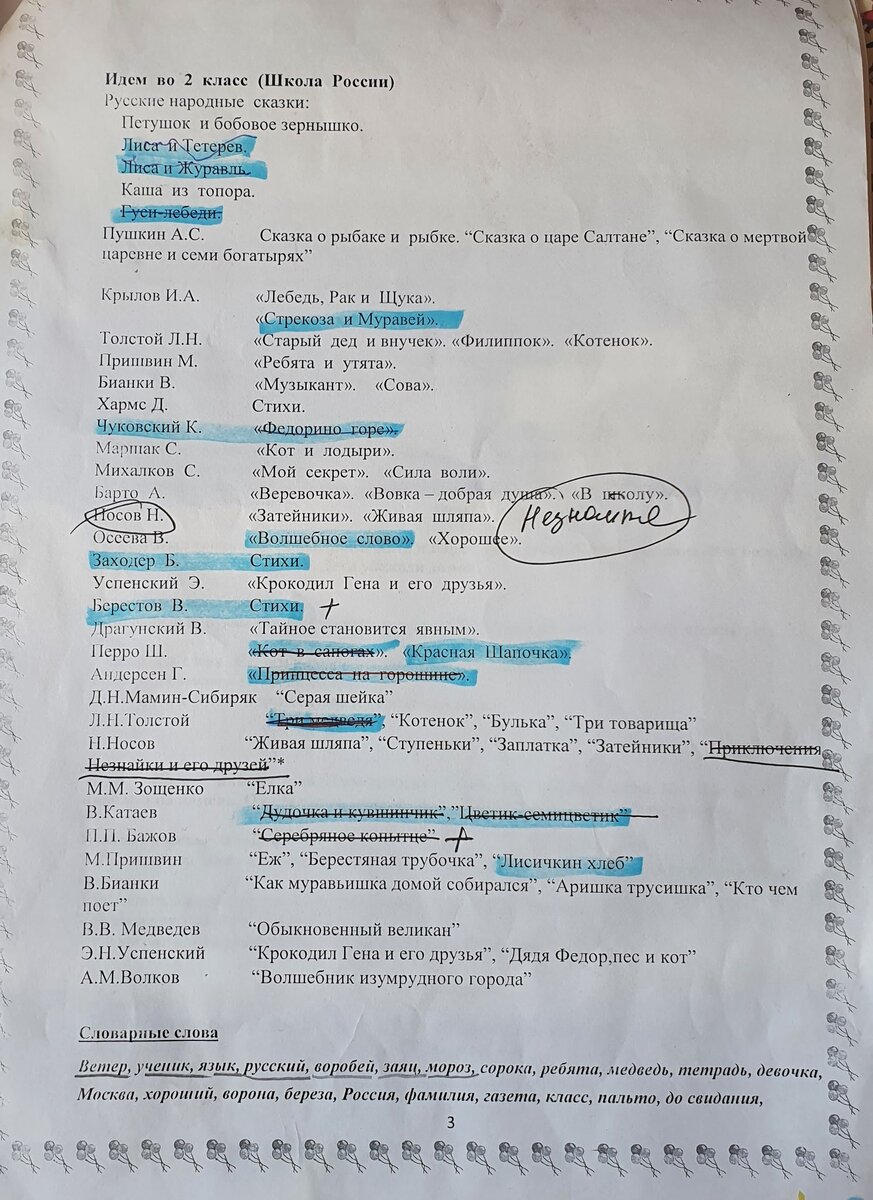 Идем во 2 класс (Школа России)
Русские народные сказки:
Петушок и бобовое зернышко.
Лиса и Тетерев.
Лиса и Журавль.
Каша из топора.
Гуси-лебеди.
Пушкин А.С. Сказка о рыбаке и рыбке. “Сказка о царе Салтане”, “Сказка о мертвой
царевне и семи богатырях”
Крылов И.А. «Лебедь, Рак и Щука».
«Стрекоза и Муравей».
Толстой Л.Н. «Старый дед и внучек». «Филиппок». «Котенок».
Пришвин М. «Ребята и утята».
Бианки В. «Музыкант». «Сова».
Хармс Д. Стихи.
Чуковский К. «Федорино горе».
Маршак С. «Кот и лодыри».
Михалков С. «Мой секрет». «Сила воли».
Барто А. «Веревочка». «Вовка – добрая душа». «В школу».
Носов Н. «Затейники». «Живая шляпа». Незнайка
Осеева В. «Волшебное слово». «Хорошее».
Заходер Б. Стихи.
Успенский Э. «Крокодил Гена и его друзья».
Берестов В. Стихи. +
Драгунский В. «Тайное становится явным».
Перро Ш. «Кот в сапогах». «Красная Шапочка».
Андерсен Г. «Принцесса на горошине».
Д.Н.Мамин-Сибиряк “Серая шейка”
Л.Н.Толстой “Три медведя”, “Котенок”, “Булька”, “Три товарища”
Н.Носов “Живая шляпа”, “Ступеньки”, “Заплатка”, “Затейники”, “Приключения
Незнайки и его друзей”*
М.М. Зощенко “Елка”
В.Катаев “Дудочка и кувшинчик”,”Цветик-семицветик”
П.П. Бажов “Серебряное копытце” +
М.Пришвин “Еж”, “Берестяная трубочка”, “Лисичкин хлеб”
В.Бианки “Как муравьишка домой собирался”, “Аришка трусишка”, “Кто чем
поет”
В.В. Медведев “Обыкновенный великан”
Э.Н.Успенский “Крокодил Гена и его друзья”, “Дядя Федор,пес и кот”
А.М.Волков “Волшебник изумрудного города”
Словарные слова
Ветер, ученик, язык, русский, воробей, заяц, мороз, сорока, ребята, медведь, тетрадь, девочка,
Москва, хороший, ворона, береза, Россия, фамилия, газета, класс, пальто, до свидания,
3